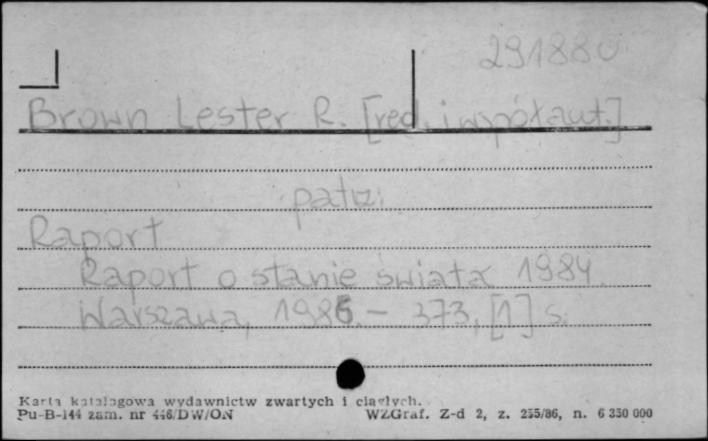 291880
Brown Lester R. [red. i współaut.]
patrz:
Raport
Raport o stanie świata 1984.
Warszawa, 1986. – 373, [1] s.
Karta katalogowa wydawnictw zwartych i ciągłych.
Pu-B-144 zam. nr 446/DW/ON WZGraf. Z-d 2, z. 255/86, n. 6 350 000